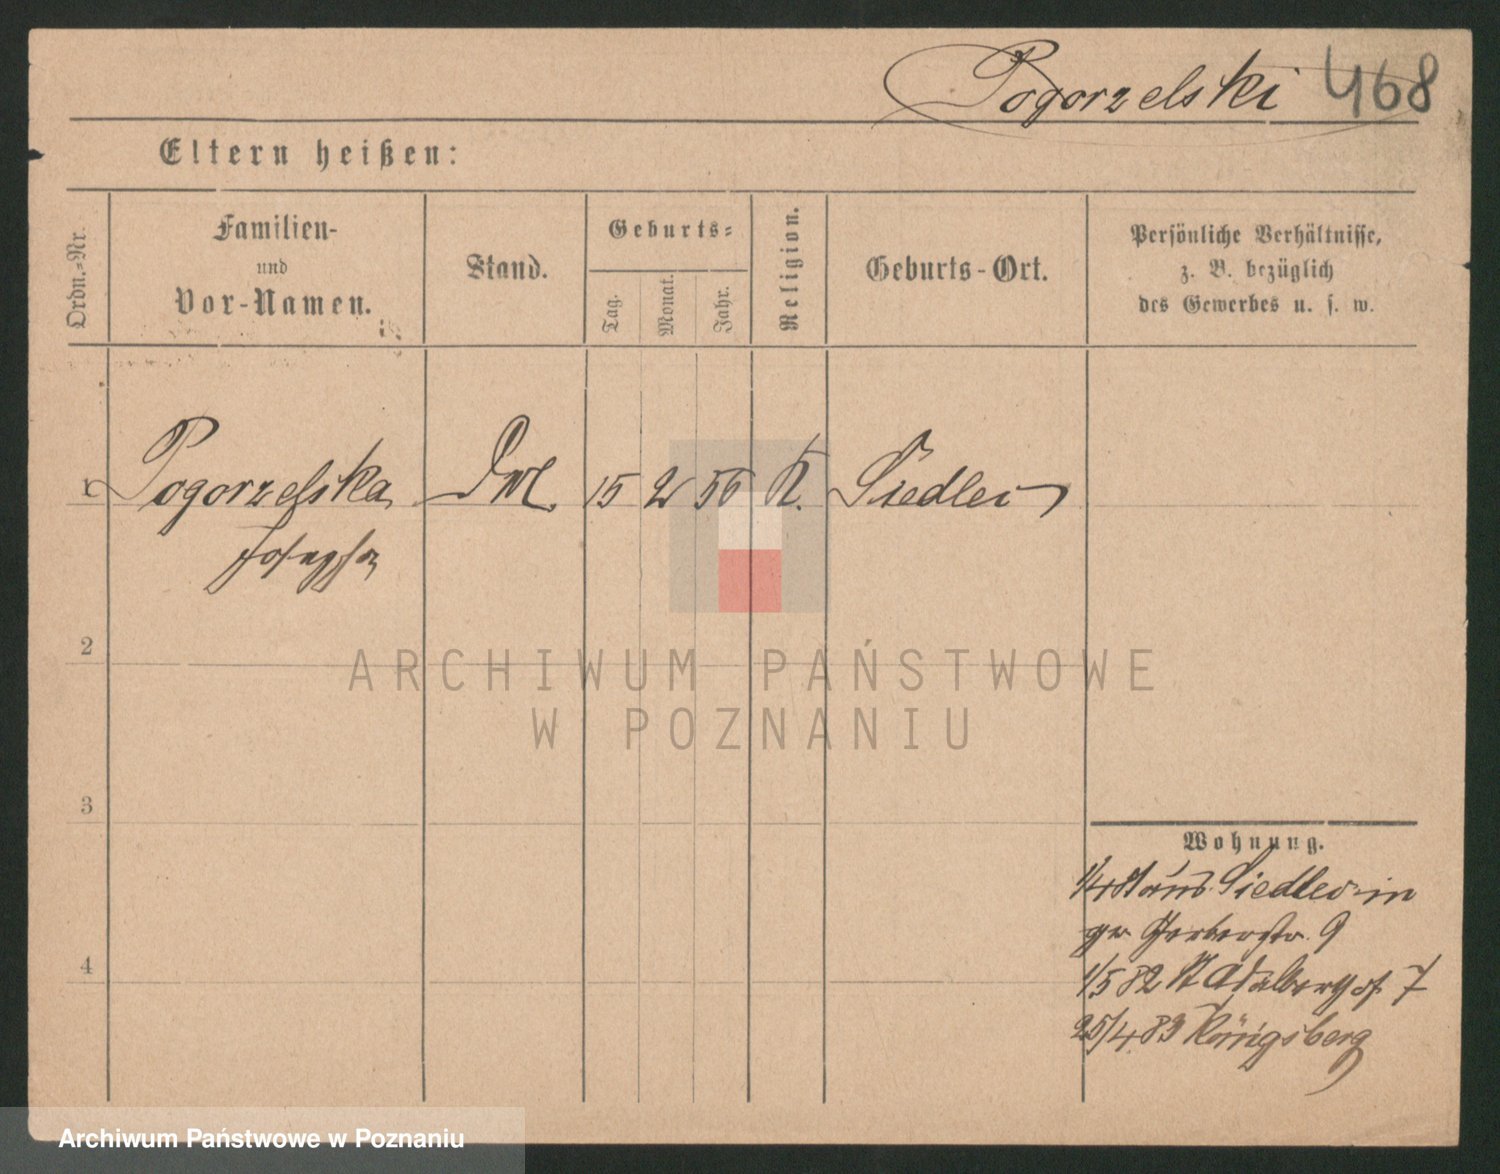 Pogorzelski 468
Eltern heißen:
Ordn.-Nr.
Familien-
und
Vor-Namen.
Stand.
Geburts-
Tag.
Monat.
Jahr.
Religion.
Geburts-Ort.
Persönliche Verhältnisse,
z. B. bezüglich
des Gewerbes u. s. w.
1 Pogorzelska 15 2 56 K. Siedlec
Josepha
2
ARCHIWUM PAŃSTWOWE
W POZNANIU
3
Wohnung.
1/4 81 aus Siedlec in
Gerberstr. 9
4
1/5 82 St Adalbert 7
25/4 83 Königsberg
Archiwum Państwowe w Poznaniu